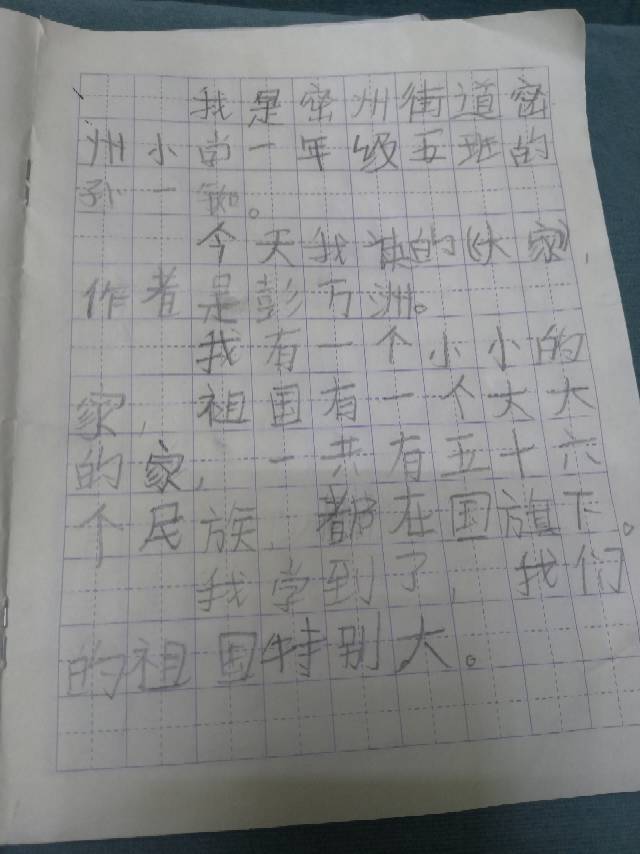 我是密州街道密
州小学一年级五班的
孙一铷。
今天我读的《大家》,
作者是彭万洲。
我有一个小小的
家,祖国有一个大大
的家,一共有五十六
个民族,都在国旗下。
我学到了,我们
的祖国特别大。